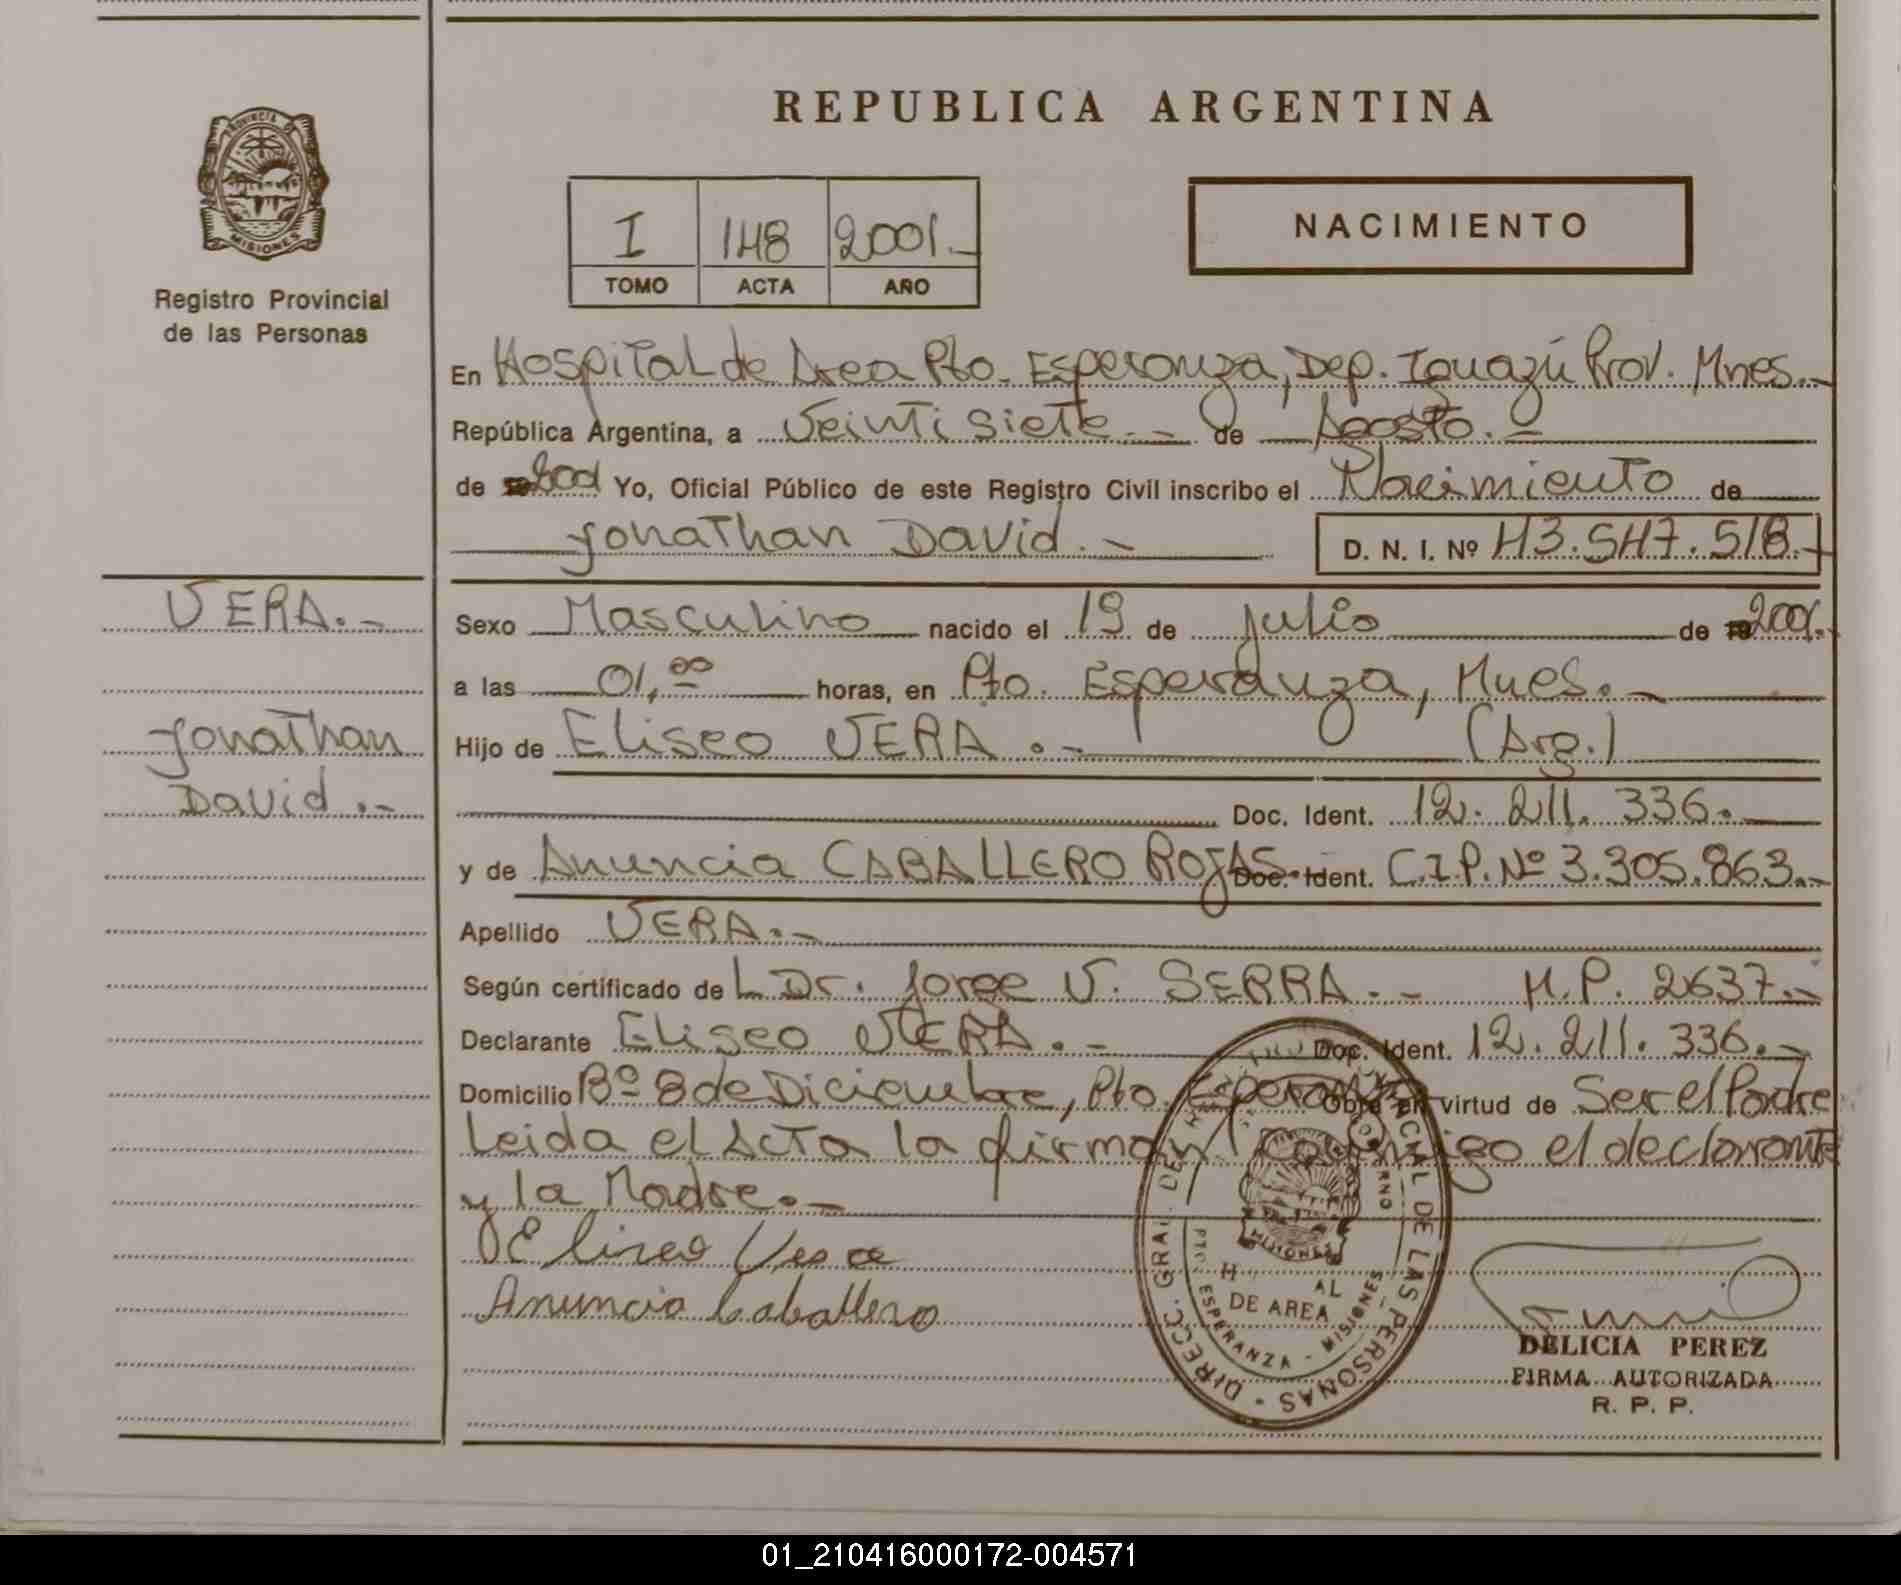 REPUBLICA ARGENTINA
PROVINCIA DE
MISIONES
Registro Provincial
de las Personas
I 148 2001.-
TOMO ACTA AÑO
NACIMIENTO
En Hospital de Area Pto. Esperanza, Dep. Iguazú Prov. Mnes.-
República Argentina, a Veintisiete.- de Agosto.-
de 2001 Yo, Oficial Público de este Registro Civil inscribo el Nacimiento de
Jonathan David.-
D. N. I. Nº 43.547.518.-
VERA.-
Jonathan
David.-
Sexo Masculino nacido el 19 de Julio de 2001.-
a las 01,00 horas, en Pto. Esperanza, Mnes.-
Hijo de Eliseo VERA.- (Arg.)
Doc. Ident. 12.211.336.-
y de Anuncia CABALLERO ROJAS.- Doc. Ident. C.I.P. Nº 3.305.863.-
Apellido VERA.-
Según certificado de L Dr. Jorge V. SERRA.- M.P. 2637.-
Declarante Eliseo VERA.- Doc. Ident. 12.211.336.-
Domicilio Bº 8 de Diciembre, Pto. Esperanza Obra en virtud de Ser el Padre
Leida el Acta la firman conmigo el declarante
y la Madre.-
Eliseo Vera
Anuncia Caballero
DIRECC. GRAL. DEL REGISTRO PROVINCIAL DE LAS PERSONAS
MISIONES
AL
DE AREA
PTO. ESPERANZA - MISIONES
DELICIA PEREZ
FIRMA AUTORIZADA
R. P. P.
01_210416000172-004571